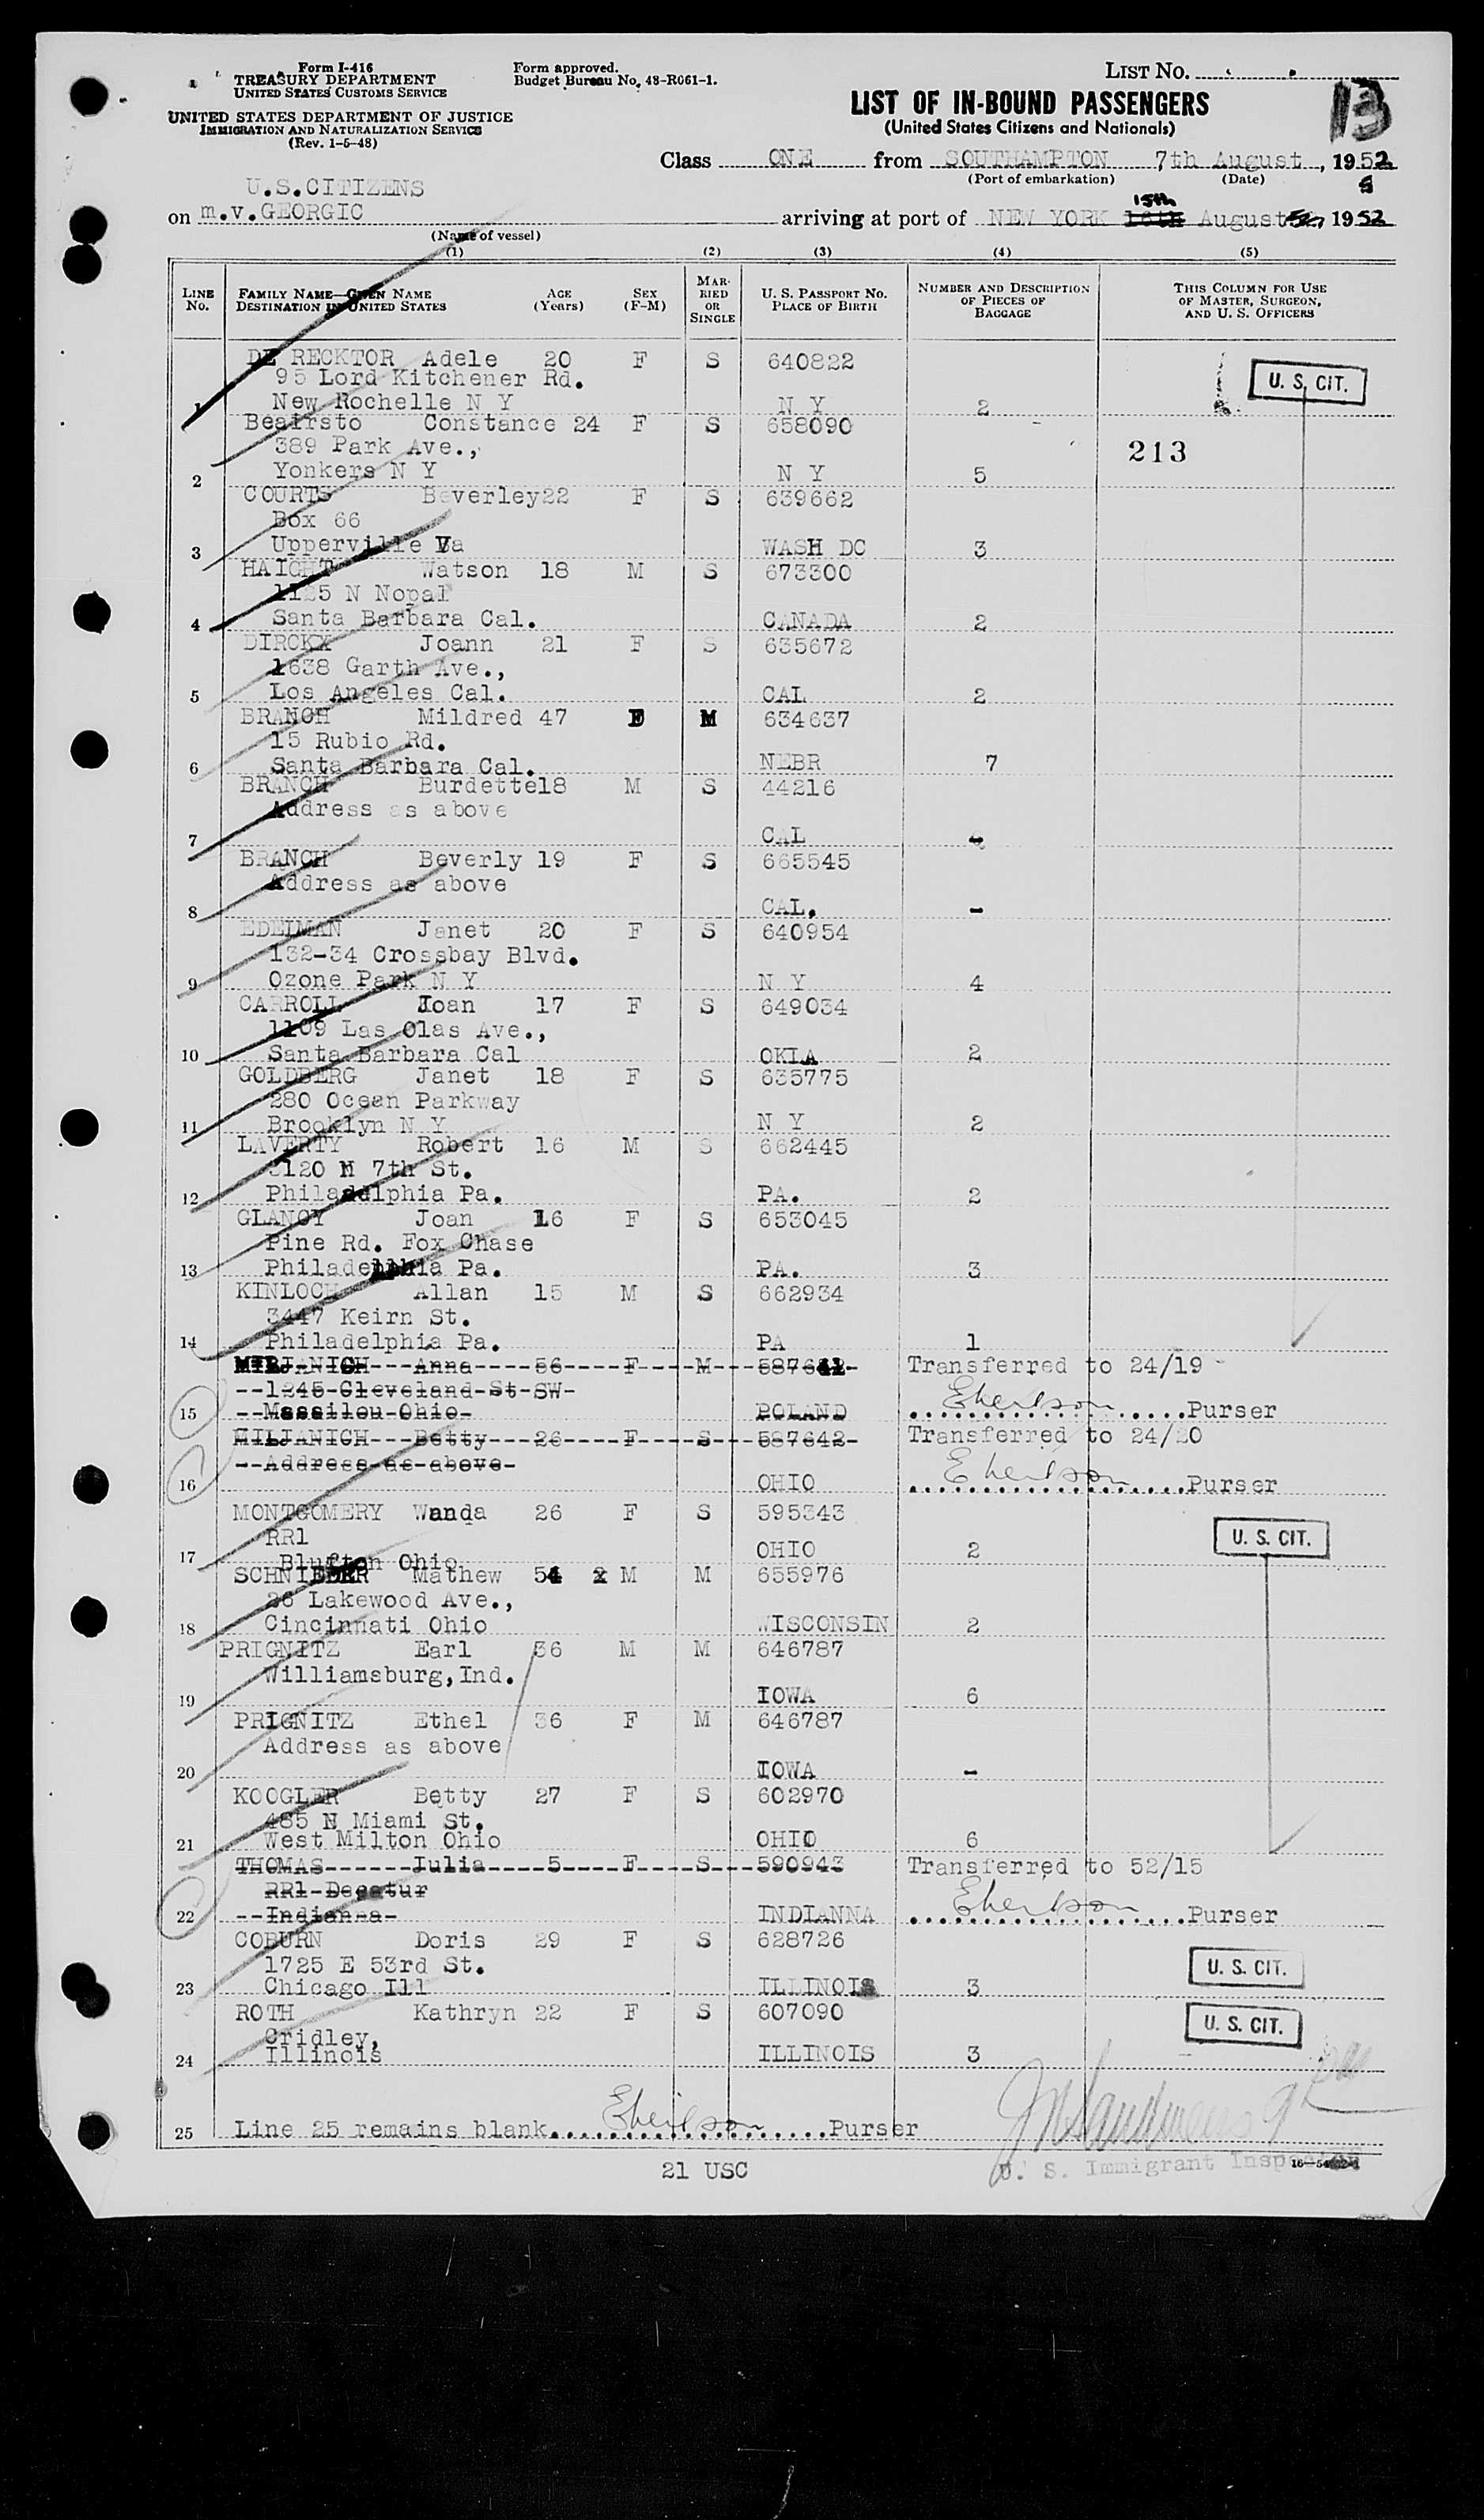 Form I-416
TREASURY DEPARTMENT
UNITED STATES CUSTOMS SERVICE
UNITED STATES DEPARTMENT OF JUSTICE
IMMIGRATION AND NATURALIZATION SERVICE
(Rev. 1-5-48)
Form approved.
Budget Bureau No. 48-R061-1.
LIST NO.
13
LIST OF IN-BOUND PASSENGERS
(United States Citizens and Nationals)
Class ONE from SOUTHAMPTON 7th August, 1952
(Port of embarkation) (Date)
U.S.CITIZENS
on m.v.GEORGIC arriving at port of NEW YORK 15th August 1952
(Name of vessel)
(1) (2) (3) (4) (5)
LINE NO.
FAMILY NAME—GIVEN NAME
DESTINATION IN UNITED STATES
AGE (Years)
SEX (F-M)
MARRIED OR SINGLE
U. S. PASSPORT NO.
PLACE OF BIRTH
NUMBER AND DESCRIPTION OF PIECES OF BAGGAGE
THIS COLUMN FOR USE OF MASTER, SURGEON, AND U. S. OFFICERS
DE RECKTOR Adele 20 F S 640822
95 Lord Kitchener Rd. U. S. CIT.
1 New Rochelle N Y N Y 2
Beairsto Constance 24 F S 658090
389 Park Ave., 213
2 Yonkers N Y N Y 5
COURTS Beverley22 F S 639662
Box 66
3 Upperville Va WASH DC 3
HAIGHT Watson 18 M S 673300
1125 N Nopal
4 Santa Barbara Cal. CANADA 2
DIRCKX Joann 21 F S 635672
1638 Garth Ave.,
5 Los Angeles Cal. CAL 2
BRANCH Mildred 47 F M 634637
15 Rubio Rd.
6 Santa Barbara Cal. NEBR 7
BRANCH Burdette18 M S 44216
Address as above
7 CAL -
BRANCH Beverly 19 F S 665545
Address as above
8 CAL. -
EDELMAN Janet 20 F S 640954
132-34 Crossbay Blvd.
9 Ozone Park N Y N Y 4
CARROLL Joan 17 F S 649034
1109 Las Olas Ave.,
10 Santa Barbara Cal OKLA 2
GOLDBERG Janet 18 F S 635775
280 Ocean Parkway
11 Brooklyn N Y N Y 2
LAVERTY Robert 16 M S 662445
3120 N 7th St.
12 Philadelphia Pa. PA. 2
GLANCY Joan 16 F S 653045
Pine Rd. Fox Chase
13 Philadelphia Pa. PA. 3
KINLOCH Allan 15 M S 662934
3447 Keirn St.
14 Philadelphia Pa. PA 1
MILJANICH---Anna----56----F----M---587641- Transferred to 24/19
--1245-Cleveland-St-SW-
15 --Massilou-Ohio- POLAND Purser
MILJANICH---Betty---26----F----S---587642- Transferred to 24/20
--Address-as-above-
16 OHIO Purser
MONTGOMERY Wanda 26 F S 595343
RR1 U. S. CIT.
17 Bluffton Ohio OHIO 2
SCHNIEDER Mathew 54 M M 655976
26 Lakewood Ave.,
18 Cincinnati Ohio WISCONSIN 2
PRIGNITZ Earl 36 M M 646787
Williamsburg,Ind.
19 IOWA 6
PRIGNITZ Ethel 36 F M 646787
Address as above
20 IOWA -
KOOGLER Betty 27 F S 602970
485 N Miami St.
21 West Milton Ohio OHIO 6
THOMAS------Julia----5----F----S---590943 Transferred to 52/15
RR1-Decatur
22 --Indianna- INDIANNA Purser
COBURN Doris 29 F S 628726
1725 E 53rd St. U. S. CIT.
23 Chicago Ill ILLINOIS 3
ROTH Kathryn 22 F S 607090
Cridley, U. S. CIT.
24 Illinois ILLINOIS 3
25 Line 25 remains blank Purser
21 USC U. S. Immigrant Inspector